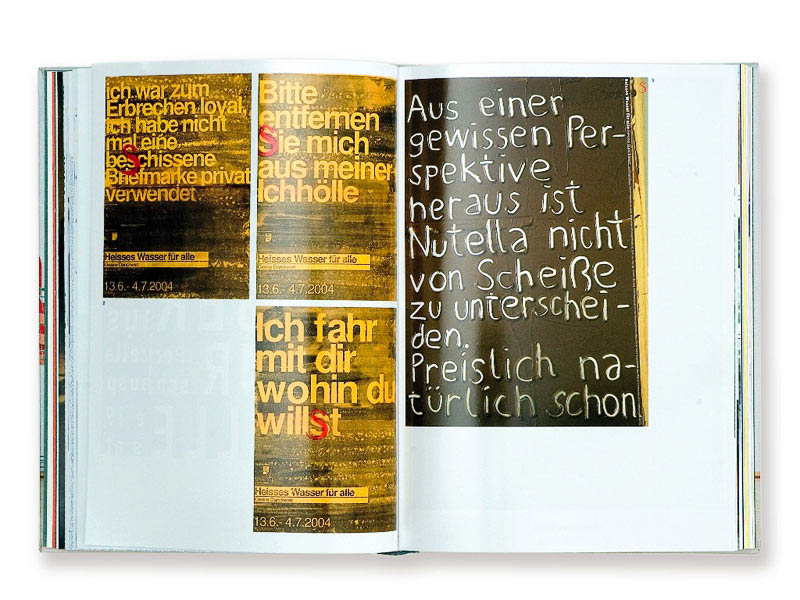 ich war zum
Erbrechen loyal,
ich habe nicht
mal eine
beschissene
Briefmarke privat
verwendet
Heisses Wasser für alle
13.6.- 4.7.2004
Bitte
entfernen
Sie mich
aus meiner
Ichhölle
Heisses Wasser für alle
13.6.- 4.7.2004
Ich fahr
mit dir
wohin du
willst
Heisses Wasser für alle
13.6.- 4.7.2004
Aus einer
gewissen Per-
spektive
heraus ist
Nutella nicht
von Scheiße
zu unterschei-
den.
Preislich na-
türlich schon